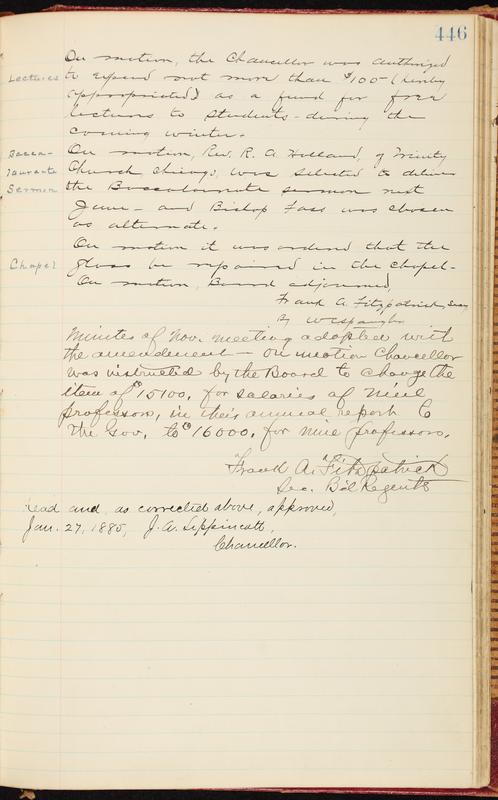 446
On motion, the Chancellor was authorized
Lectures to expend not more than $100- (hereby
appropriated) as a fund for free
lectures to students - during the
coming winter.
Bacca- On motion, Rev. R. A. Holland, of Trinity
laureate Church, Chicago, was selected to deliver
Sermon the Baccalaureate sermon next
June - and Bishop Foss was chosen
as alternate.
On motion it was ordered that the
Chapel glass be repaired in the Chapel -
On motion, Board adjourned,
Frank A. Fitzpatrick, Secy
By W C Spangler
Minutes of Nov. meeting adopted with
the amendment - On motion Chancellor
was instructed by the Board to change the
item of $15100, for salaries of nine
professors, in their annual report to
the Gov. to $16000, for nine professors.
Frank A. Fitzpatrick
Sec. B'd Regents
read and, as corrected above, approved,
Jan. 27, 1885, J. A. Lippincott,
Chancellor.